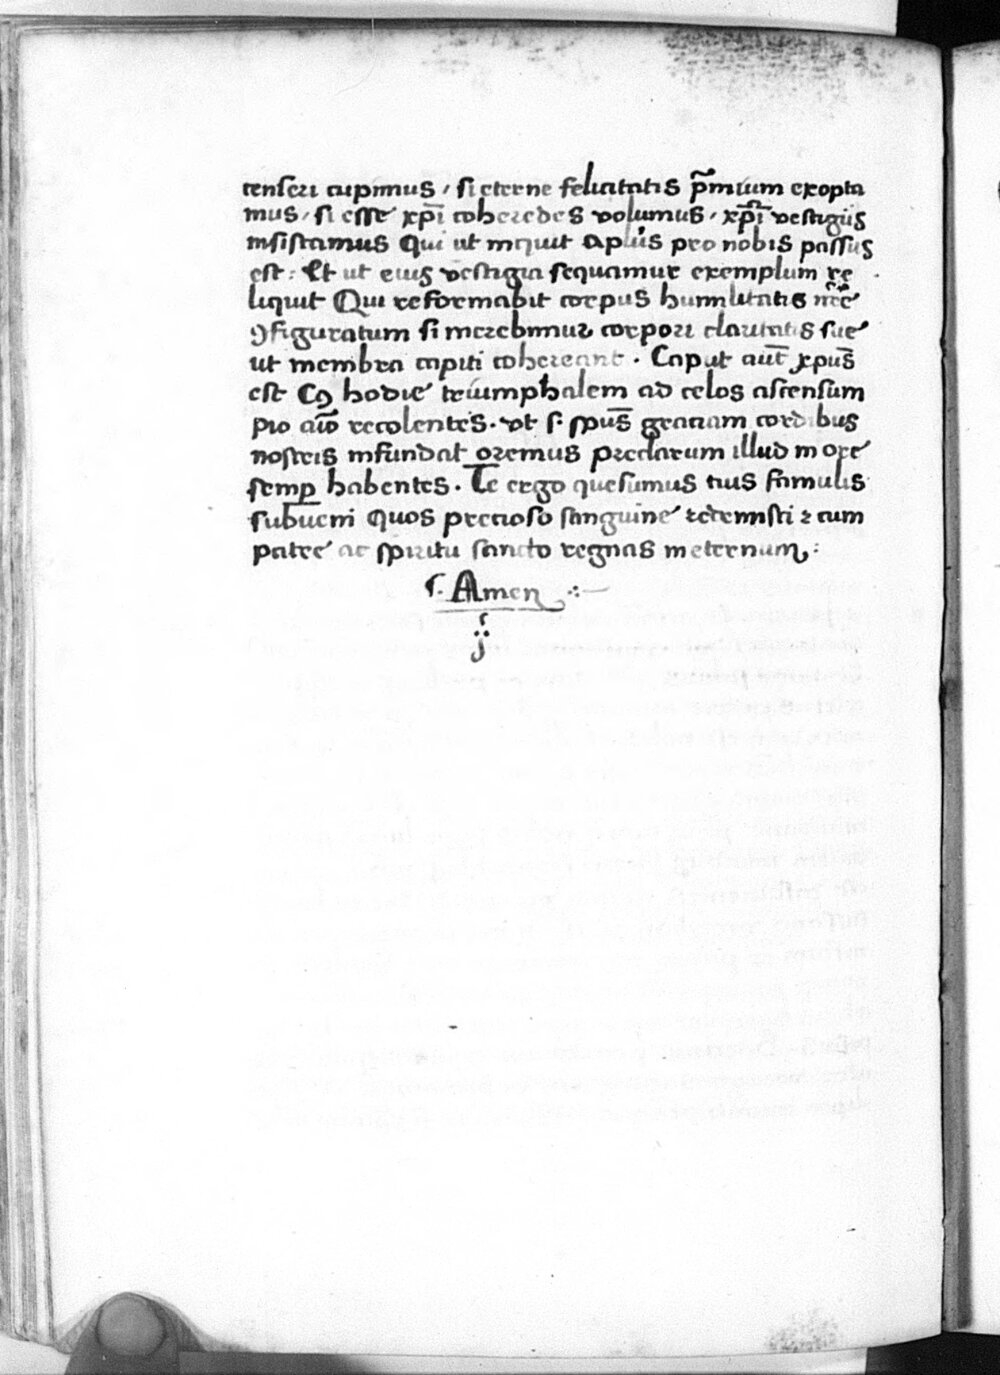 censeri cupimus / si eterne felicitatis p̄mium exopta
mus / si esse xp̄i coheredes volumus / xp̄i vestigiis
insistamus Qui ut inquit aplūs pro nobis passus
est : Et ut eius vestigia sequamur exemplum re
liquit Qui reformabit corpus humilitatis nr̄e
ꝯfiguratum si meremur corpori claritatis sue
ut membra capiti cohereant . Caput aūt xpūs
est Cꝯ hodie triumphalem ad celos ascensum
pio aīo recolentes . vt s . spūs graciam cordibus
nostris infundat oremus preclarum illud in ore
semp̱ habentes . Te ergo quesumus tuis famulis
subueni Quos precioso sanguine redemisti ⁊ cum
patre ac spiritu sancto regnas in eternum :
s . Amen